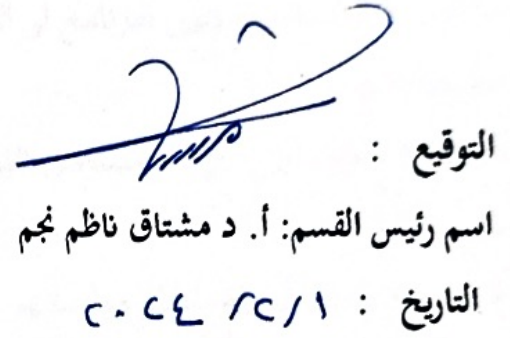 التوقيع :
اسم رئيس القسم: أ. د مشتاق ناظم نجم
التاريخ : ١/٢/ ٢٠٢٤